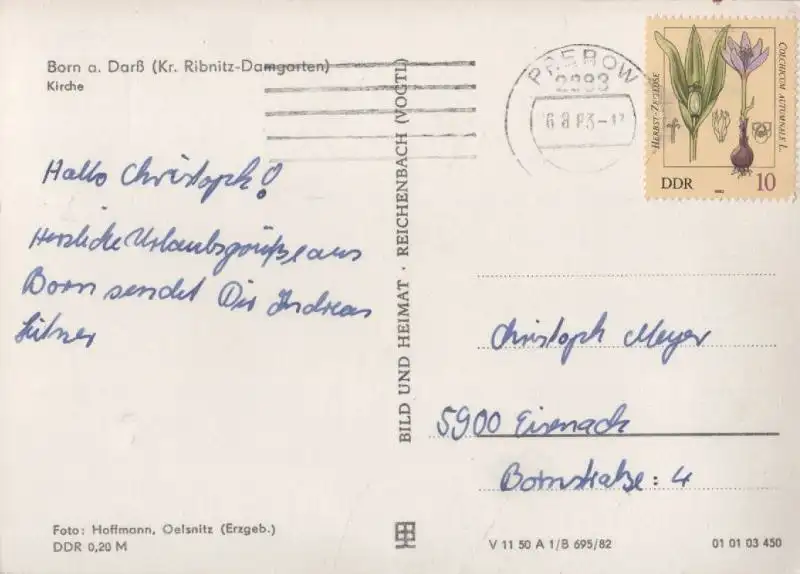 Born a. Darß (Kr. Ribnitz-Damgarten)
Kirche
Hallo Christoph!
Herzliche Urlaubsgrüße aus
Born sendet Dir Andreas
BILD UND HEIMAT · REICHENBACH (VOGTL)
PREROW
2383
6.8.83-
HERBST-ZEITLOSE
COLCHICUM AUTUMNALE L.
DDR
1982
10
Christoph Meyer
5900 Eisenach
Bornstraße: 4
Foto: Hoffmann, Oelsnitz (Erzgeb.)
DDR 0,20 M
V 11 50 A 1/B 695/82
01 01 03 450